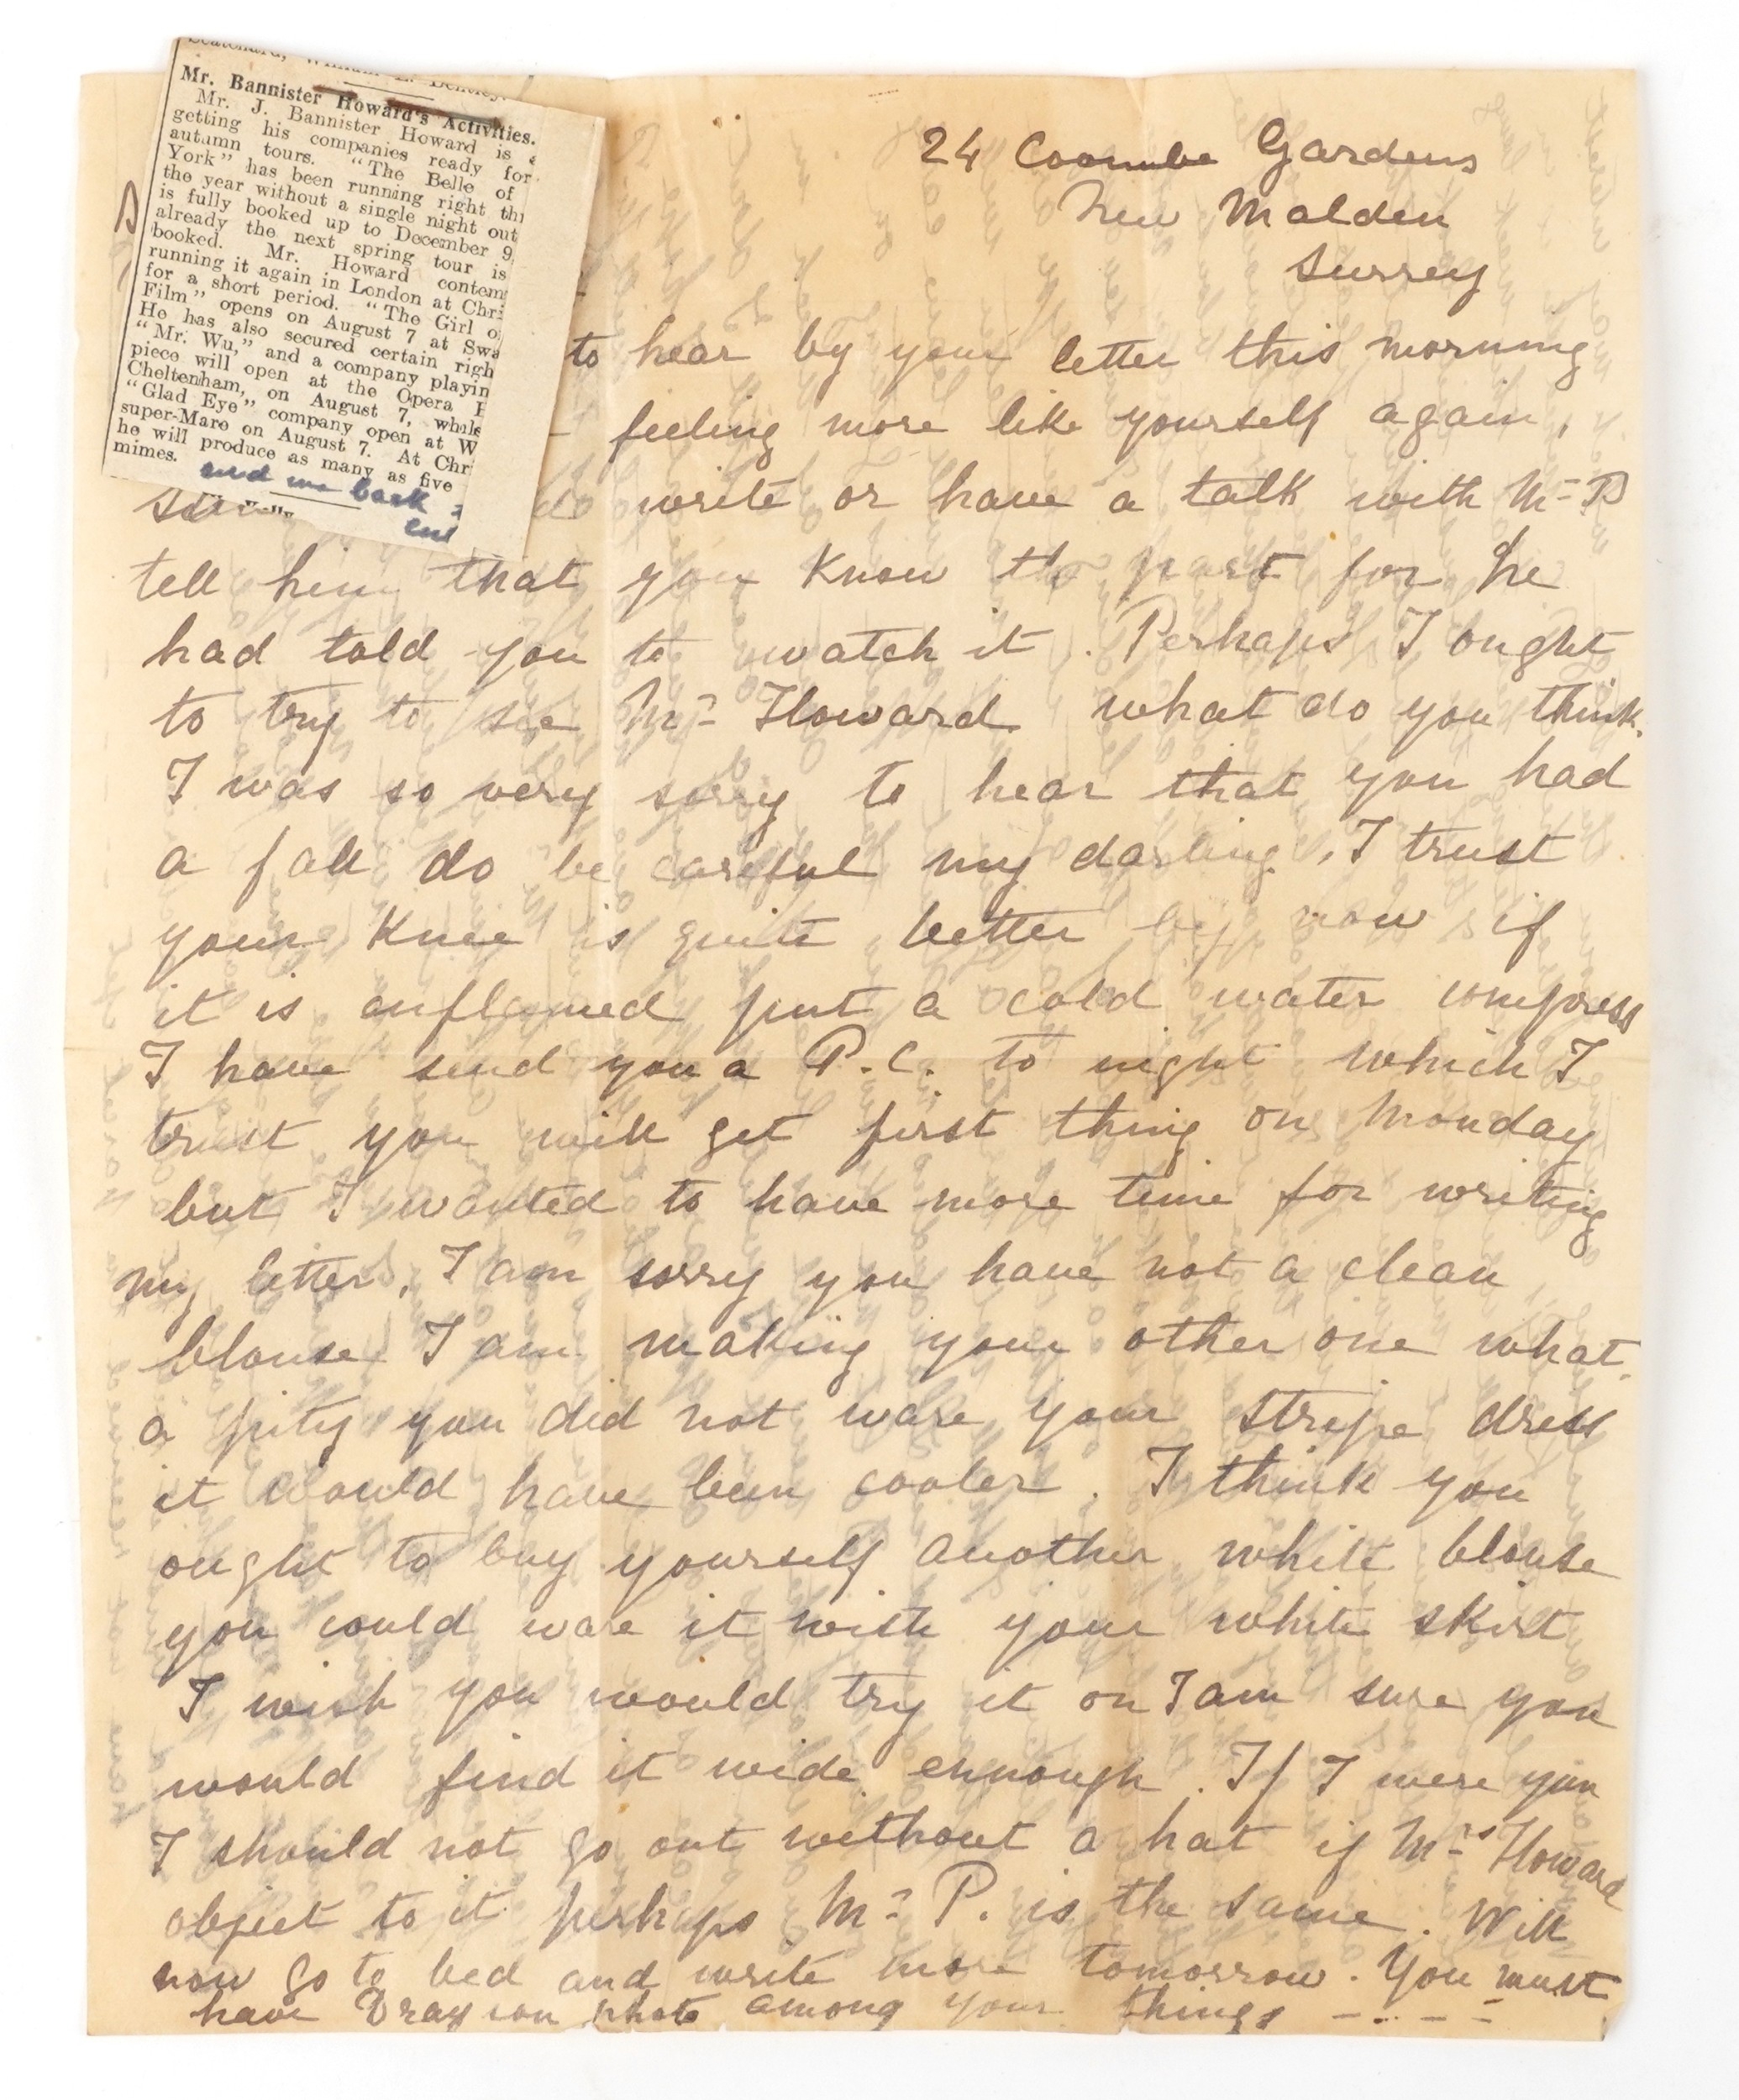 Mr. Bannister Howard's Activities.
Mr. J. Bannister Howard is
getting his companies ready for
autumn tours. "The Belle of
York" has been running right
the year without a single night out
is fully booked up to December 9
already the next spring tour is
booked. Mr. Howard contem
running it again in London at Chri
for a short period. "The Girl o
Film" opens on August 7 at Swa
He has also secured certain righ
"Mr. Wu," and a company playin
piece will open at the Opera
Cheltenham, on August 7, while
"Glad Eye" company open at W
super-Mare on August 7. At Chr
he will produce as many as five
mimes.
send me back
24 Coombe Gardens
New Malden
Surrey
to hear by your letter this morning
feeling more like yourself again,
do write or have a talk with Mr P
tell him that you know the part for he
had told you to watch it. Perhaps I ought
to try to see Mr Howard what do you think.
I was so very sorry to hear that you had
a fall do be careful my darling, I trust
your knee is quite better by now if
it is enflamed put a cold water compress
I have send you a P.C. to night which I
trust you will get first thing on Monday
but I wanted to have more time for writing
my letter, I am sorry you have not a clean
blouse I am making your other one what
a pity you did not ware your stripe dress
it would have been cooler. I think you
ought to buy yourself another white blouse
you could ware it with your white skirt
I wish you would try it on I am sure you
would find it wide ennough. If I were you
I should not go out without a hat if Mrs Howard
object to it perhaps Mr P. is the same. Will
now go to bed and write more tomorrow. You must
have photo among your things - . - -